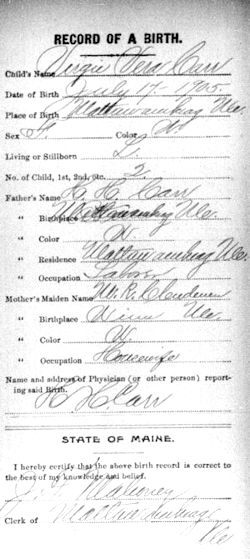 RECORD OF A BIRTH.
Child's Name Vera Carr
Date of Birth July 17. 1905.
Place of Birth Mattawamkeag Me.
Sex F. Color W
Living or Stillborn L.
No. of Child, 1st, 2nd, etc. 2
Father's Name H. H. Carr
" Birthplace Mattawamkeag Me.
" Color W.
" Residence Mattawamkeag Me.
" Occupation Laborer
Mother's Maiden Name M. R.
" Birthplace Winn Me.
" Color W.
" Occupation Housewife
Name and address of Physician (or other person) report-
ing said Birth.
H H Carr
STATE OF MAINE.
I hereby certify that the above birth record is correct to
the best of my knowledge and belief.
Maloney
Clerk of Mattawamkeag
Me